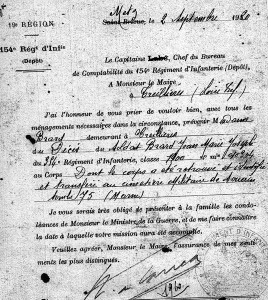 19e RÉGION
154e Régt d'Infie
(Dépôt)
Metz
Saint-Brieuc, le 2 Septembre 1920
Le Capitaine Labé, Chef du Bureau
de Comptabilité du 154e Régiment d'Infanterie (Dépôt),
A Monsieur le Maire
à Treillières (Loire Infre)
J'ai l'honneur de vous prier de vouloir bien, avec tous les
ménagements nécessaires dans la circonstance, prévenir Madame
Brard demeurant à Treillières
du Décès du Soldat Brard Jean Marie Joseph
du Régiment d'Infanterie, classe 1900
au Corps Dont le corps a été retrouvé et identifié
et transféré au cimetière militaire de
tombe 175 (Meuse)
Je vous serais très obligé de présenter à la famille les condo-
léances de Monsieur le Ministre de la Guerre, et de me faire connaître
la date à laquelle votre mission aura été accomplie.
Veuillez agréer, Monsieur le Maire, l'assurance de mes senti-
ments les plus distingués.